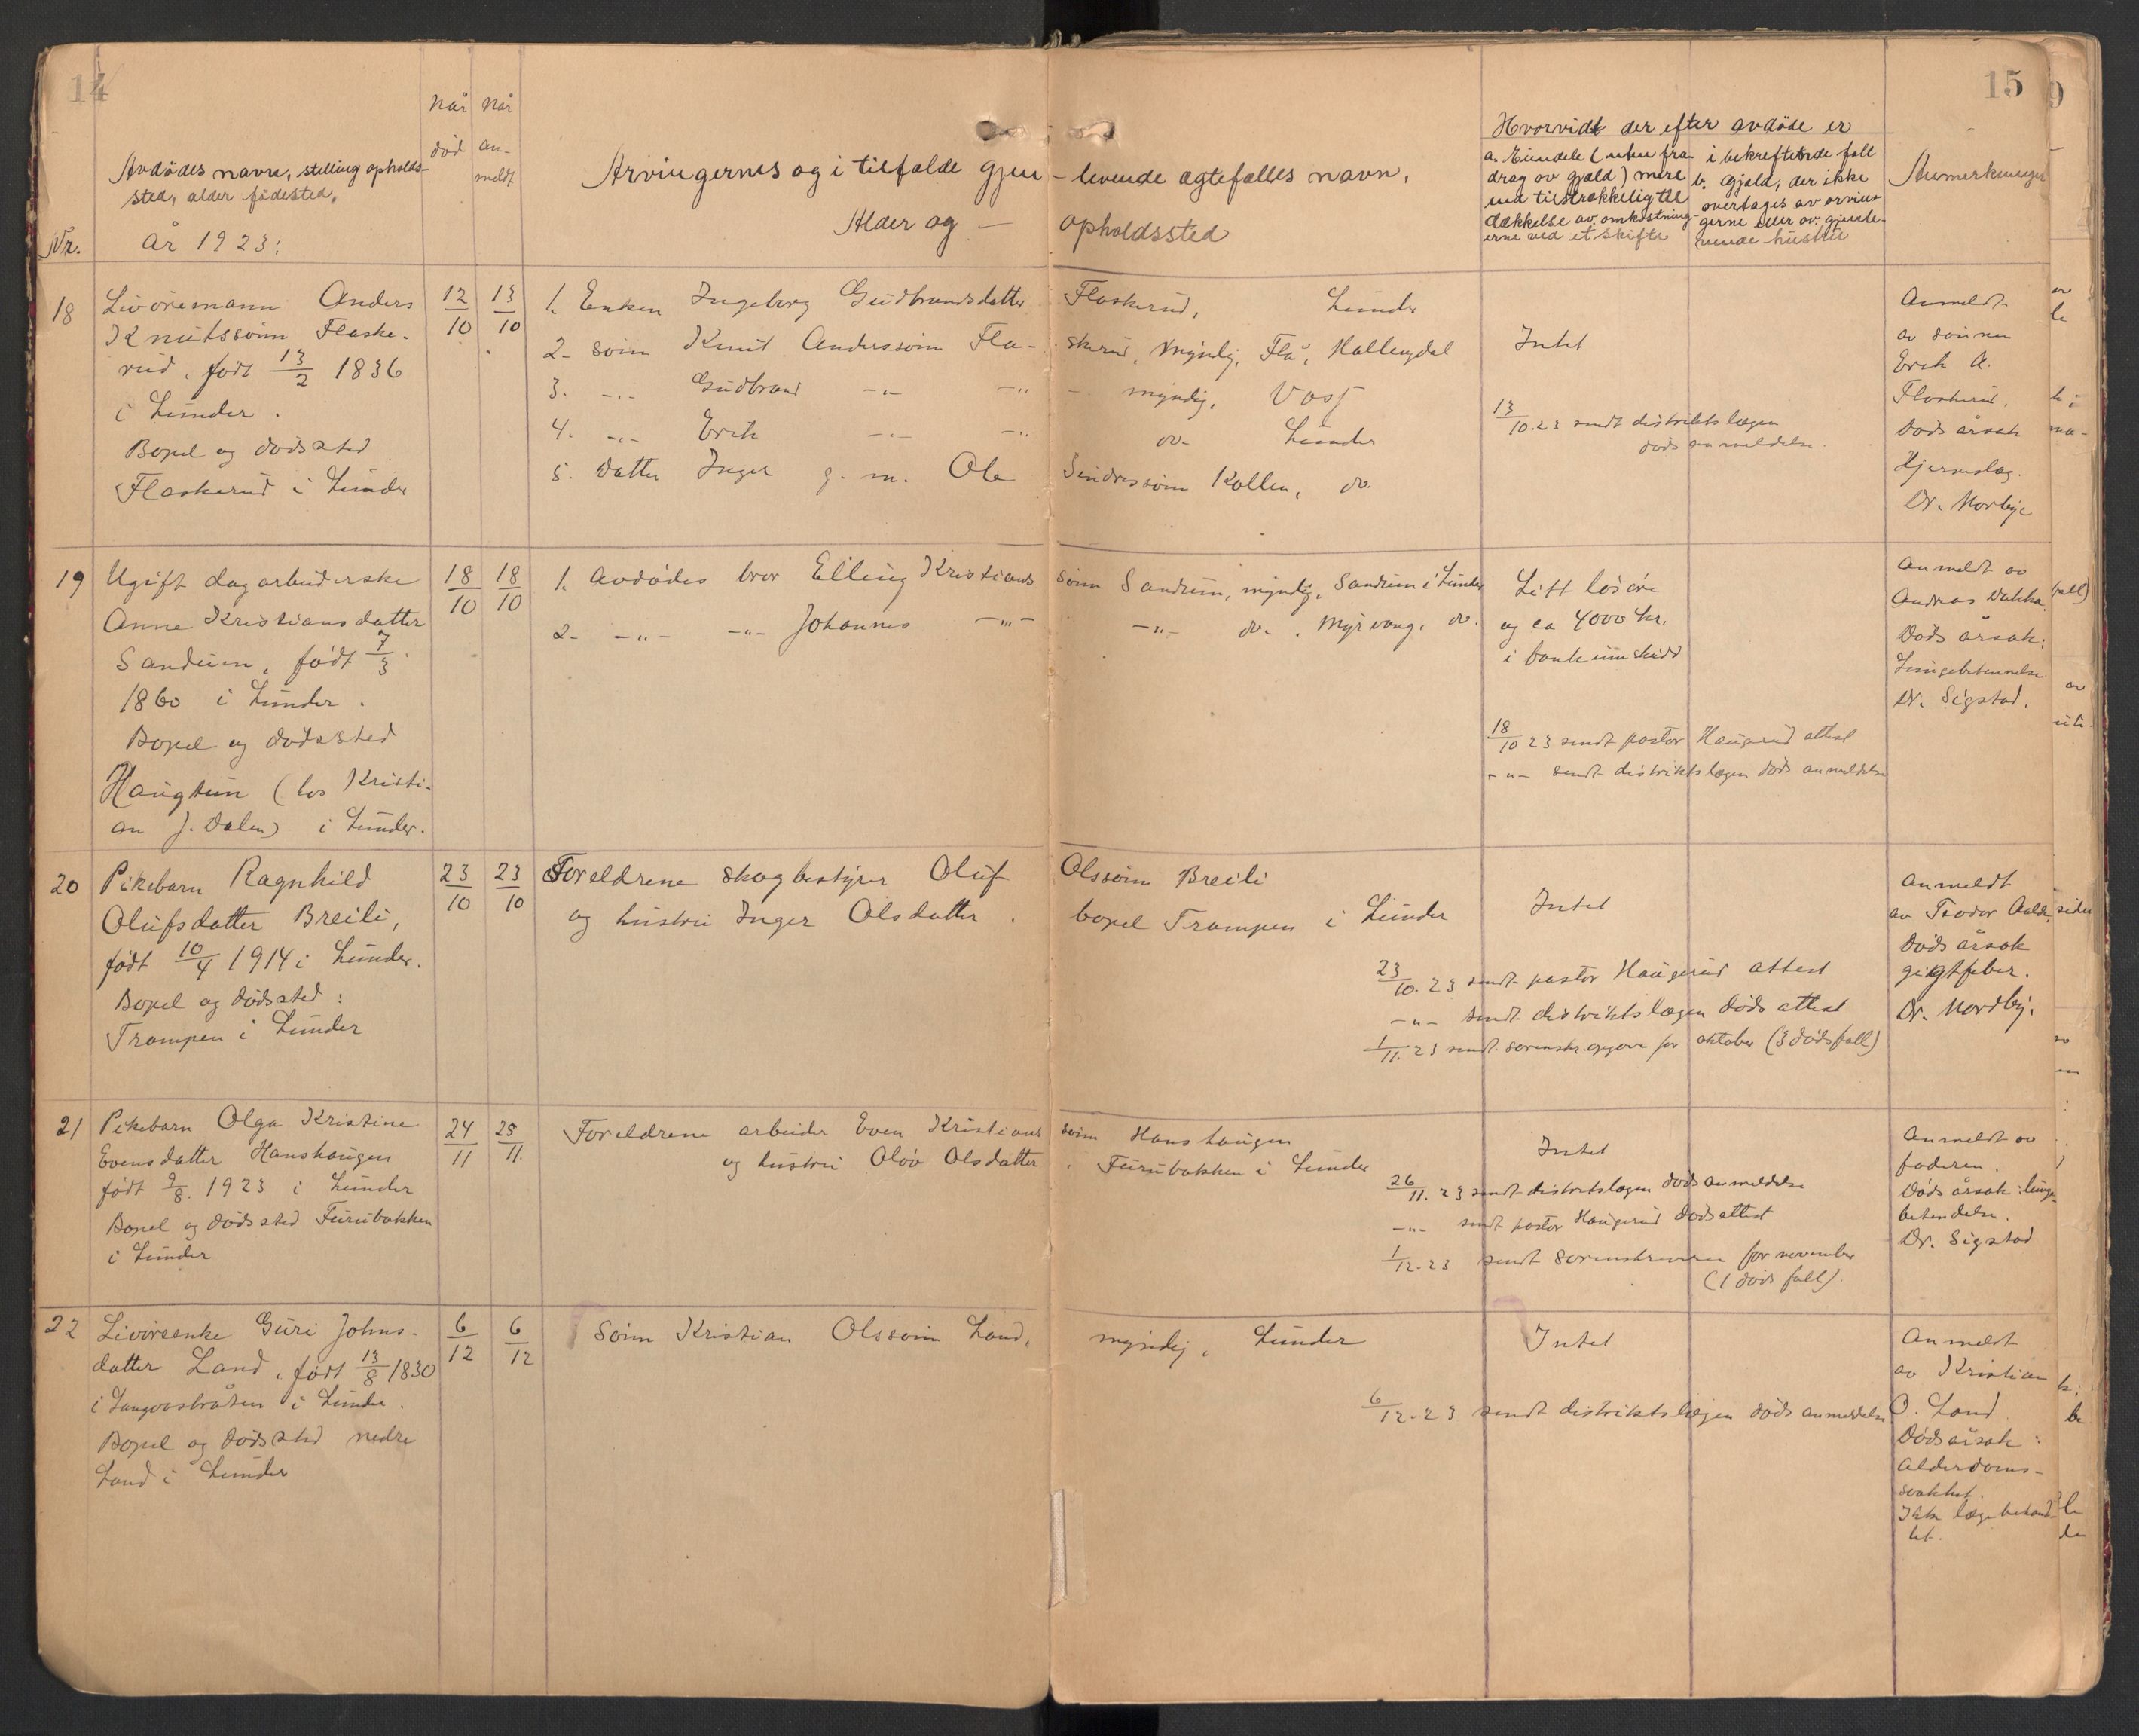 14
15
Nr.
Avdödes navn, stilling opholds-
sted, alder födested,
År 1923:
Når död
Når an-
meldt
Arvingernes og i tilfælde gjen - levende ægtefælles navn,
Alder og - opholdssted
Hvorvidt der efter avdöde er
a. Eiendele (uten fra-
drag av gjæld) mere
end tilstrækkelig til
dækkelse av omkostning-
erne ved et skifte
i bekreftende fall
b. Gjæld, der ikke
overtages av arvin-
gerne eller av gjenle-
vende hustru
Anmerkninger
18
Livöremann Anders
Knutssönn Flaske-
rud, født 13/2 1836
i Lunder.
Bopel og dødssted
Flaskerud i Lunder
12/10
13/10
1. Enken Ingeborg Gudbrandsdatter Flaskerud, Lunder
2- sönn Knut Anderssönn Fla- skerud, myndig, Flå, Hallingdal
3. -"- Gudbrand -"- -"- - myndig, Voss
4. -"- Erik -"- -"- do- Lunder
5. datter Inger g. m. Ole Sindressönn Kollen, do.
Intet
13/10.23 sendt distriktslægen
döds anmeldelse.
Anmeldt
av sönnen
Erik A.
Flaskerud.
Döds årsak
Hjerneslag.
Dr. Norbye
19
Ugift dagarbeiderske
Anne Kristiansdatter
Sandum, født 7/3
1860 i Lunder.
Bopel og dødssted
Haugtun (hos Kristi-
an J. Dalen) i Lunder.
18/10
18/10
1. Avdødes bror Elling Kristians sönn Sandum, myndig, Sandum i Lunder
2- -"- -"- Johannes -"- -"- do- . Myrvang, do.
Litt løsøre
og ca 4000 kr.
i bankinnskudd
18/10 23 sendt pastor Haugerud attest
-"- sendt distriktslægen döds anmeldelse
Anmeldt av
Andreas Dakka.
Døds årsak:
Lungebetennelse
Dr. Sigstad.
20
Pikebarn Ragnhild
Olufsdatter Breili,
født 10/4 1914 i Lunder.
Bopel og dødssted:
Trampen i Lunder
23/10
23/10
Foreldrene skogbestyrer Oluf Olssönn Breili
og hustru Inger Olsdatter. bopel Trampen i Lunder
Intet
23/10.23 sendt pastor Haugerud attest
-"- sendt distriktslægen döds attest
1/11.23 sendt sorenskr. opgave for oktober (3 dødsfall)
Anmeldt
av Teodor
Døds årsak
gigtfeber.
Dr. Nordby.
21
Pikebarn Olga Kristine
Evensdatter Hanshaugen
født 9/8. 1923 i Lunder
Bopel og døds sted Furubakken
i Lunder
24/11
25/11.
Foreldrene arbeider Even Kristians sönn Hanshaugen
og hustru Olöv Olsdatter, Furubakken i Lunder
Intet
26/11.23 sendt distriktslægen döds anmeldelse
-"- sendt pastor Haugerud dødsattest
1/12-23 sendt sorenskriveren for november
(1 døds fall).
Anmeldt av
faderen.
Døds årsak: lunge-
betendelse.
Dr. Sigstad
22
Livörsenke Guri Johns-
datter Land, født 13/8 1830
i Langvasbråten i Lunder.
Bopel og dødssted nedre
Land i Lunder
6/12
6/12
Sönn Kristian Olssönn Land, myndig, Lunder
Intet
6/12-23 sendt distriktslægen døds anmeldelse
Anmeldt
av Kristian
O. Land
Dødsårsak:
Alderdoms-
svakhet.
Ikke lægebehand-
let.